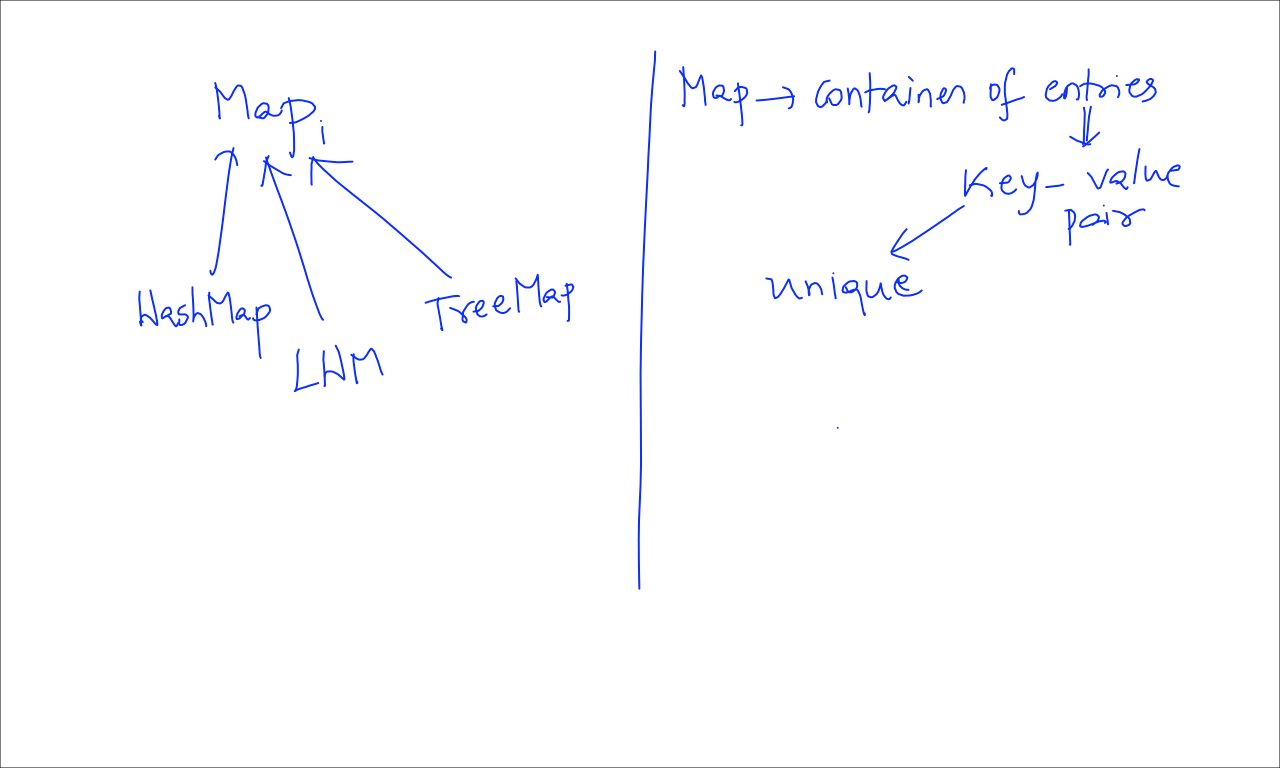 Map i
HashMap
LHM
TreeMap
Map → container of entries
Key - value
pair
unique